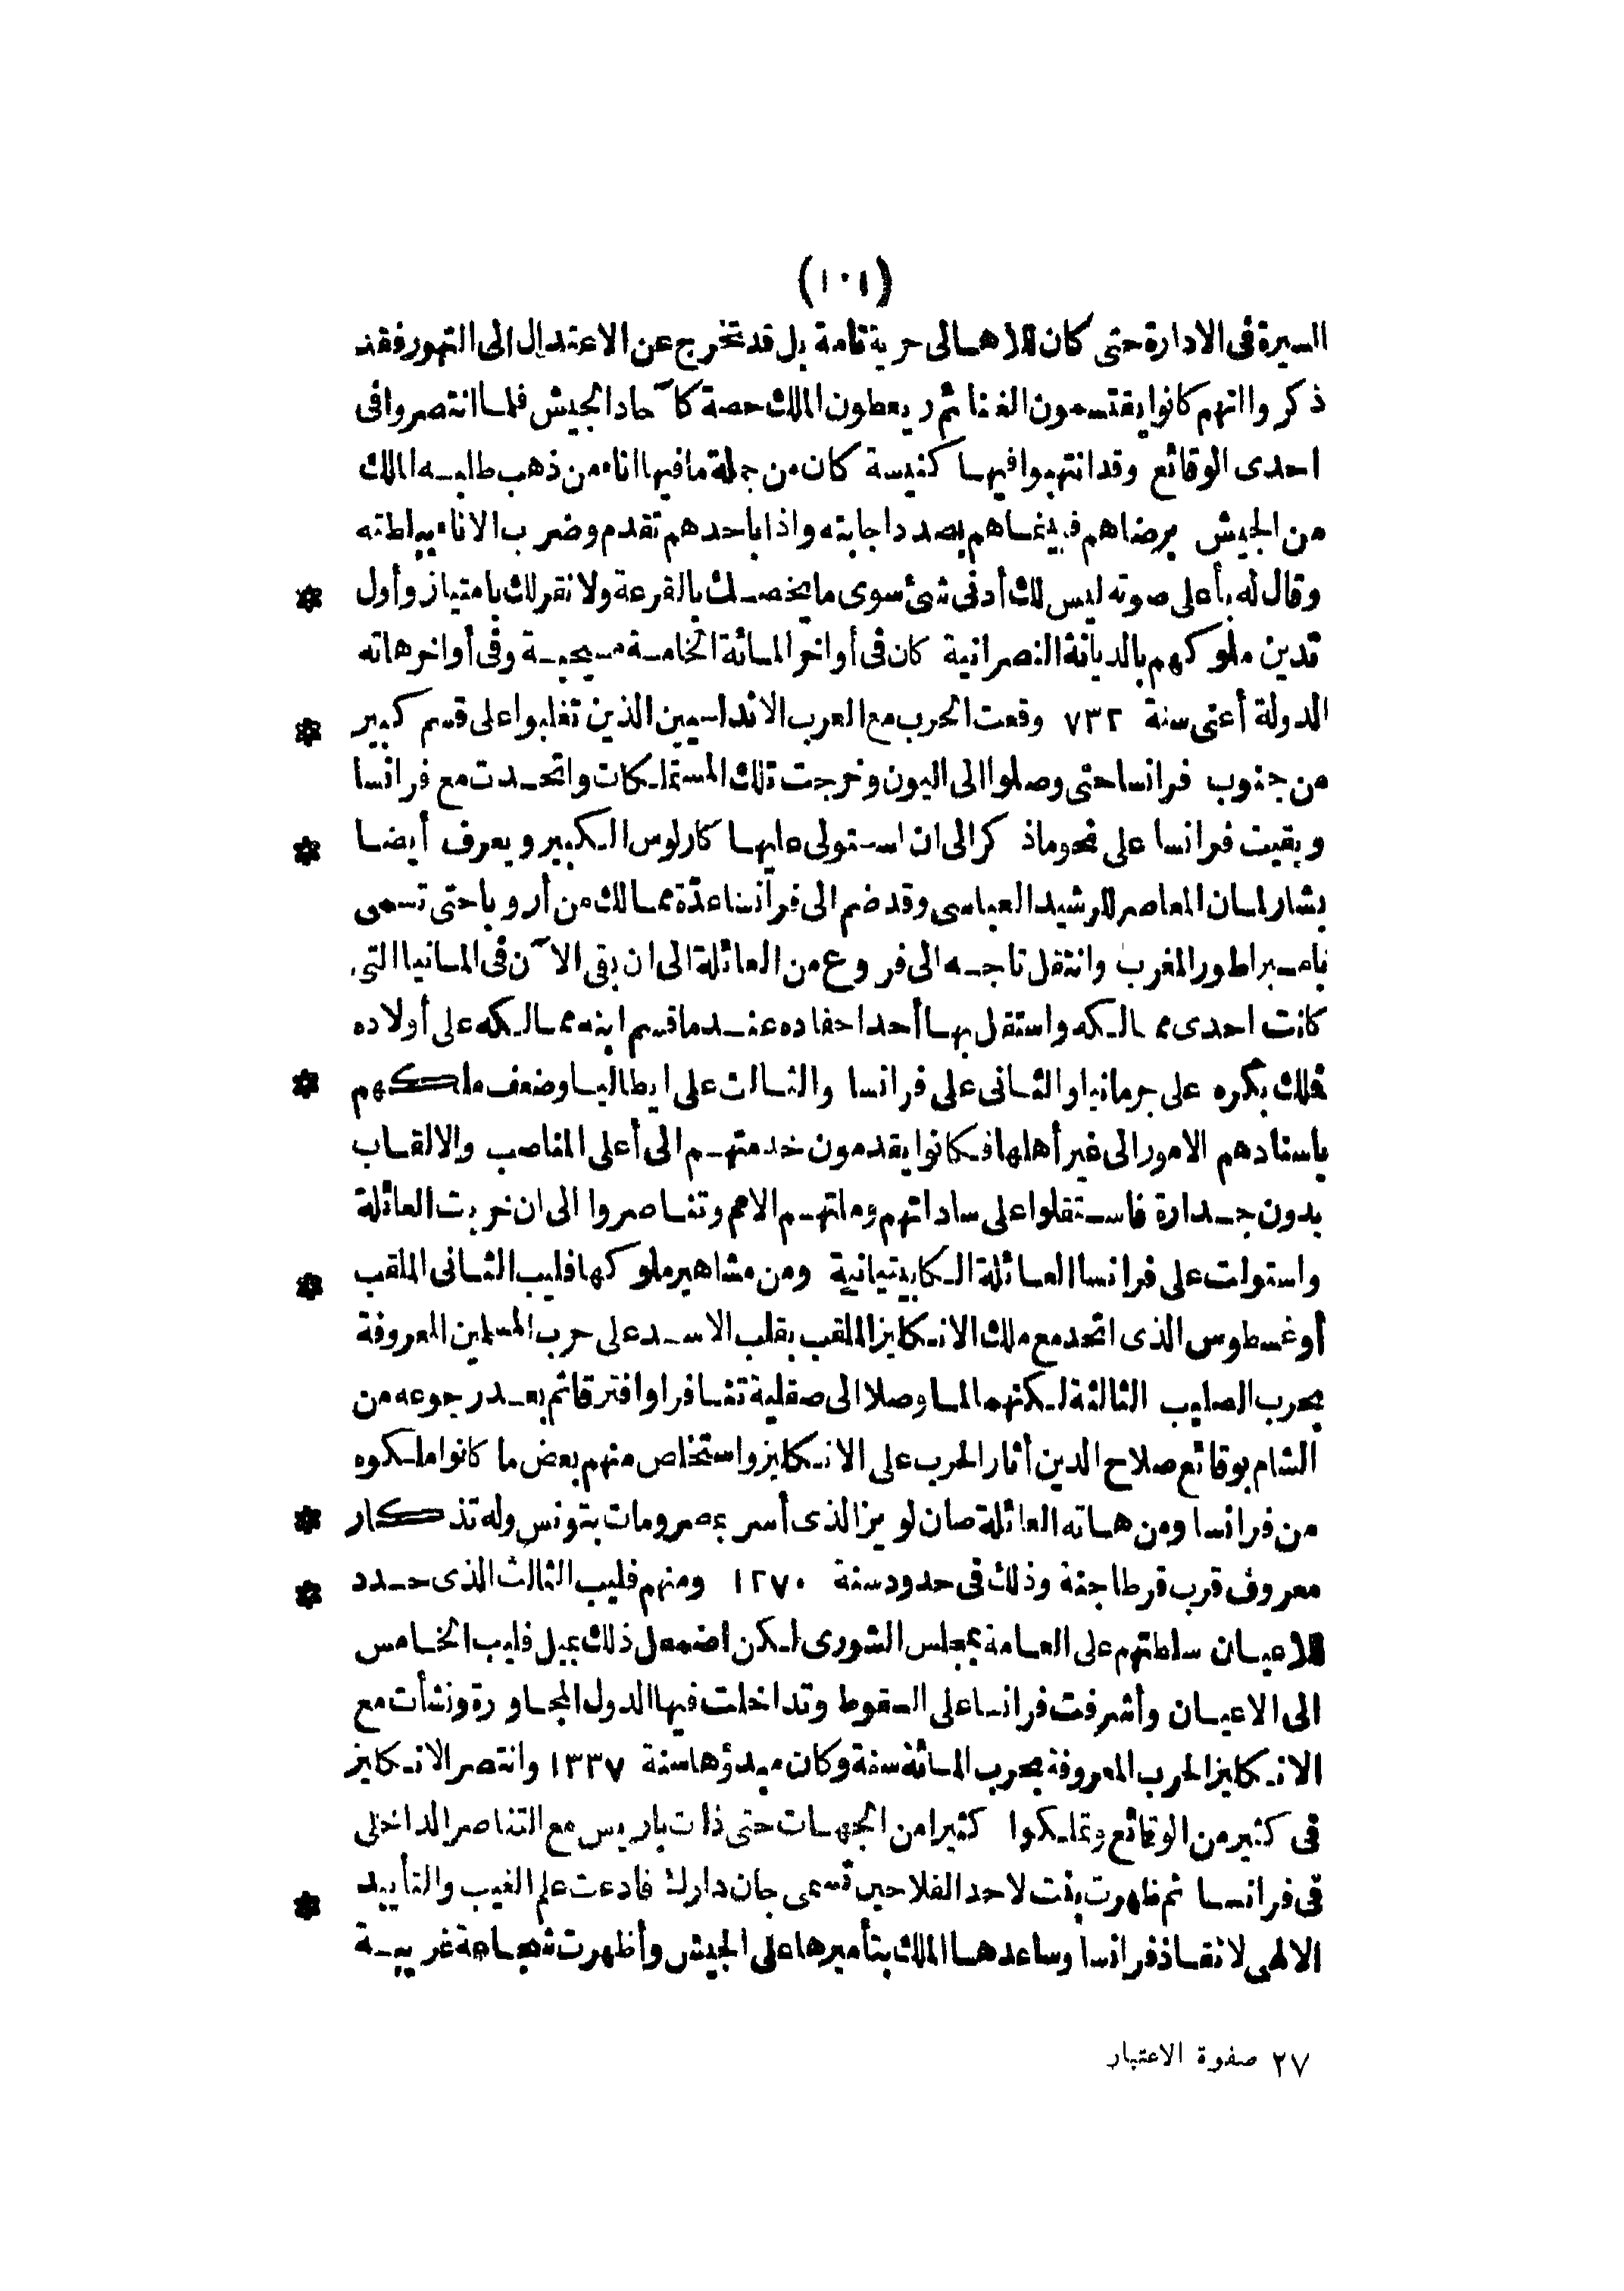 (١٠١)
السيرة فى الادارة حتى كان للاهالى حرية تامة بل قد تخرج عن الاعتدال الى التهور فقد
ذكروا انهم كانوا يقتسمون الغنائم ويعطون الملك حصة كآحاد الجيش فلما انتصروا فى
احدى الوقائع وقد انتهبوا فيها كنيسة كان من جملة ما فيها اناء من ذهب طلبه الملك
من الجيش برضاهم فبينما هم بصدد اجابته واذا باحدهم تقدم وضرب الاناء ببلطته
وقال له بأعلى صوته ليس لك أدنى شئ سوى ما يخصك بالقرعة ولا نقر لك بامتياز وأول *
تدين ملوكهم بالديانة النصرانية كان فى أواخر المائة الخامسة مسيحية وفى أواخر هاته
الدولة أعنى سنة ٧٣٢ وقعت الحرب مع العرب الاندلسيين الذين تغلبوا على قسم كبير *
من جنوب فرانسا حتى وصلوا الى اليون وخرجت تلك المستملكات واتحدت مع فرانسا
وبقيت فرانسا على نحو ما ذكر الى ان استولى عليها كارلوس الكبير ويعرف أيضا *
بشارلمان المعاصر للرشيد العباسى وقد ضم الى فرانسا عدّة ممالك من أروبا حتى تسمى
بامبراطور المغرب وانتقل تاجه الى فروع من العائلة الى ان بقى الآن فى المانيا التى
كانت احدى ممالكه واستقل بها أحد احفاده عندما قسم ابنه ممالكه على أولاده
فملك بكره على جرمانيا والثانى على فرانسا والثالث على ايطاليا وضعف ملكهم *
باسنادهم الامور الى غير أهلها فكانوا يقدمون خدمتهم الى أعلى المناصب والالقاب
بدون جدارة فاستقلوا على ساداتهم وملتهم الامم وتناصروا الى ان خربت العائلة
واستولت على فرانسا العائلة الكابيتيانية ومن مشاهير ملوكها فليب الثانى الملقب *
أوغسطوس الذى اتحد مع ملك الانكليز الملقب بقلب الاسد على حرب المسلمين المعروفة
بحرب الصليب الثالثة لكنهما لما وصلا الى صقلية تنافرا وافترقا ثم بعد رجوعه من
الشام بوقائع صلاح الدين أثار الحرب على الانكليز واستخلص منهم بعض ما كانوا ملكوه
من فرانسا ومن هاته العائلة صان لويز الذى أسر بمصر ومات بتونس وله تذكار *
معروف قرب قرطاجنة وذلك فى حدود سنة ١٢٧٠ ومنهم فليب الثالث الذى حدد *
للاعيان سلطتهم على العامة بمجلس الشورى لكن اضمحل ذلك بميل فليب الخامس
الى الاعيان وأشرفت فرانسا على السقوط وتداخلت فيها الدول المجاورة ونشأت مع
الانكليز الحرب المعروفة بحرب المائة سنة وكان مبدؤها سنة ١٣٣٧ وانتصر الانكليز
فى كثير من الوقائع وتملكوا كثيرا من الجهات حتى ذات باريس مع التناصر الداخلى
فى فرانسا ثم ظهرت بنت لاحد الفلاحين تسمى جان دارك فادعت علم الغيب والتأييد *
الالهى لانقاذ فرانسا وساعدها الملك بتأميرها على الجيش وأظهرت شجاعة غريبة
٢٧ صفوة الاعتبار